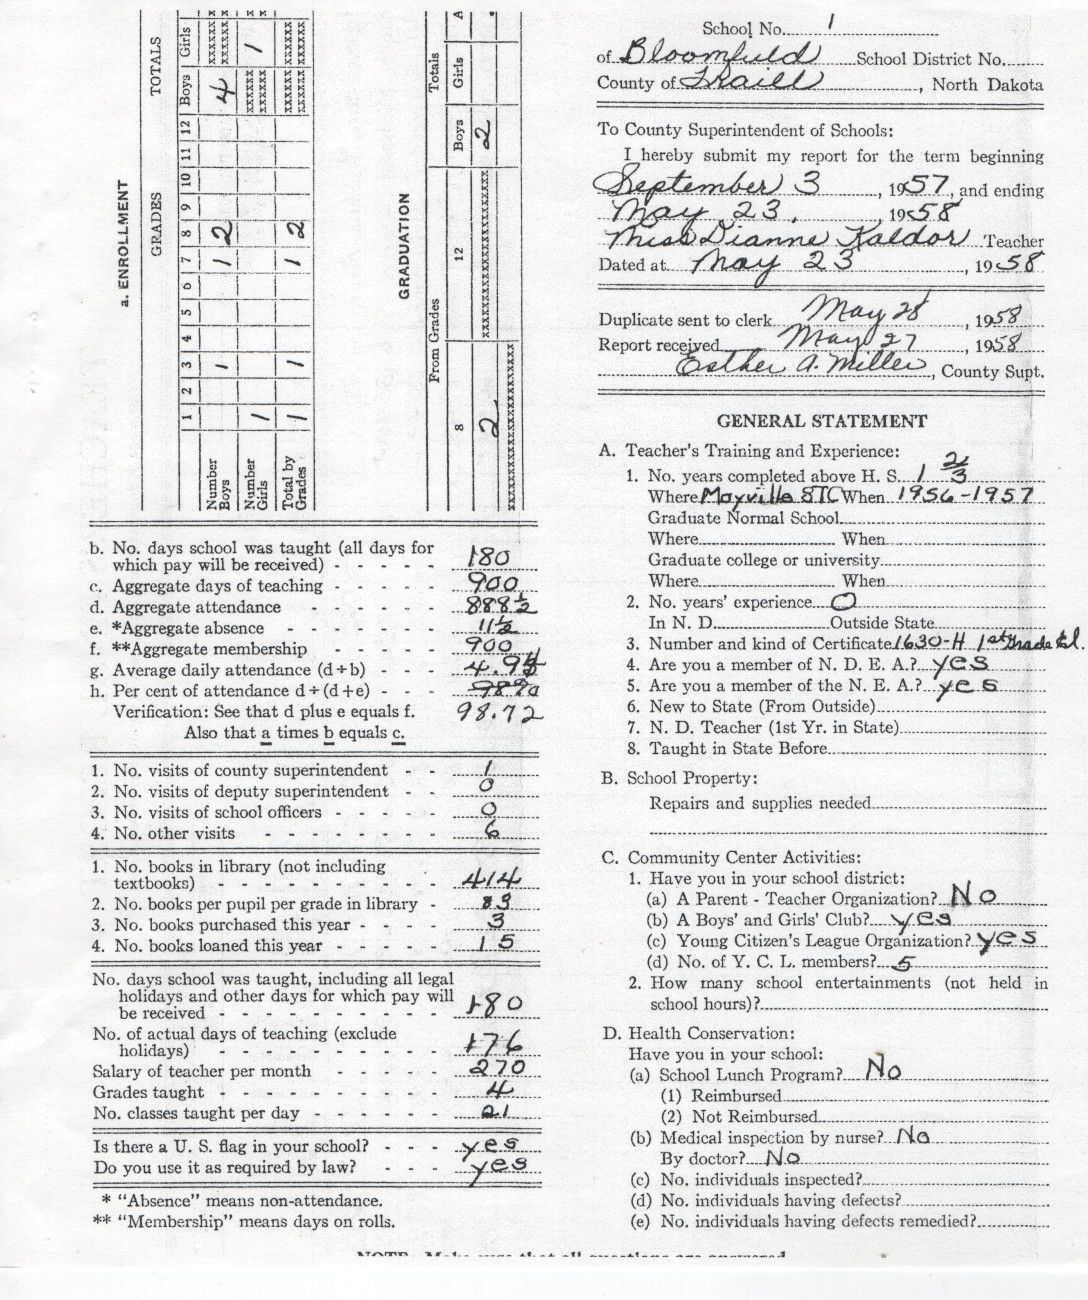 a. ENROLLMENT
GRADES TOTALS
1 2 3 4 5 6 7 8 9 10 11 12 Boys Girls
Number Boys 1 1 2 4 xxxxxx
xxxxxx
Number Girls 1 xxxxxx 1
xxxxxx
Total by Grades 1 1 1 2 xxxxxx xxxxxx
xxxxxx xxxxxx
GRADUATION
From Grades Totals
8 12 Boys Girls A
2 xxxxxxxxxxxxxxxxxxxxxx 2
xxxxxxxxxxxxxxxxxxxxxx
b. No. days school was taught (all days for
which pay will be received) - - - - - 180
c. Aggregate days of teaching - - - - - 900
d. Aggregate attendance - - - - - - 888½
e. *Aggregate absence - - - - - - - 11½
f. **Aggregate membership - - - - - 900
g. Average daily attendance (d÷b) - - - 4.94
h. Per cent of attendance d÷(d+e) - - - 98%
Verification: See that d plus e equals f. 98.72
Also that a times b equals c.
1. No. visits of county superintendent - - 1
2. No. visits of deputy superintendent - - 0
3. No. visits of school officers - - - - - 0
4. No. other visits - - - - - - - - 6
1. No. books in library (not including
textbooks) - - - - - - - - - - 414
2. No. books per pupil per grade in library - 83
3. No. books purchased this year - - - - 3
4. No. books loaned this year - - - - - 15
No. days school was taught, including all legal
holidays and other days for which pay will
be received - - - - - - - - - - 180
No. of actual days of teaching (exclude
holidays) - - - - - - - - - - 176
Salary of teacher per month - - - - - 270
Grades taught - - - - - - - - - - 4
No. classes taught per day - - - - - - 21
Is there a U. S. flag in your school? - - - yes
Do you use it as required by law? - - - yes
* "Absence" means non-attendance.
** "Membership" means days on rolls.
School No. 1
of Bloomfield School District No.
County of Traill, North Dakota
To County Superintendent of Schools:
I hereby submit my report for the term beginning
September 3, 1957, and ending
May 23, 1958
Miss Dianne Kaldor Teacher
Dated at May 23, 1958
Duplicate sent to clerk May 28, 1958
Report received May 27, 1958
Esther A. Miller, County Supt.
GENERAL STATEMENT
A. Teacher's Training and Experience:
1. No. years completed above H. S. 1 2/3
Where Mayville STC When 1956-1957
Graduate Normal School
Where When
Graduate college or university
Where When
2. No. years' experience 0
In N. D. Outside State
3. Number and kind of Certificate 1630-H 1st Grade El.
4. Are you a member of N. D. E. A.? yes
5. Are you a member of the N. E. A.? yes
6. New to State (From Outside)
7. N. D. Teacher (1st Yr. in State)
8. Taught in State Before
B. School Property:
Repairs and supplies needed
C. Community Center Activities:
1. Have you in your school district:
(a) A Parent - Teacher Organization? No
(b) A Boys' and Girls' Club? yes
(c) Young Citizen's League Organization? yes
(d) No. of Y. C. L. members? 5
2. How many school entertainments (not held in
school hours)?
D. Health Conservation:
Have you in your school:
(a) School Lunch Program? No
(1) Reimbursed
(2) Not Reimbursed
(b) Medical inspection by nurse? No
By doctor? No
(c) No. individuals inspected?
(d) No. individuals having defects?
(e) No. individuals having defects remedied?
NOTE Make sure that all questions are answered